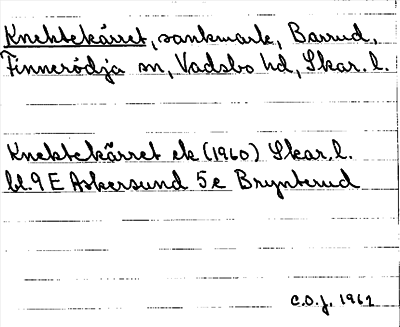 Knektekärret, sankmark, Barrud,
Finnerödja sn, Vadsbo hd, Skar. l.
Knektekärret ek (1960) Skar. l.
bl. 9 E Askersund 5e Brynterud
C.O.J. 1961